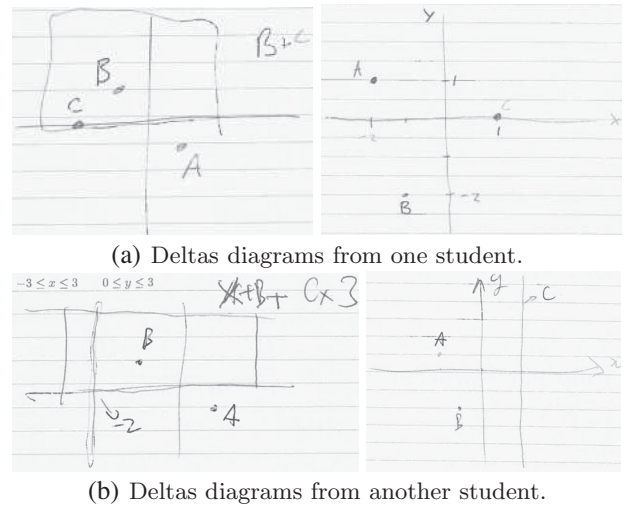 B+C
B
C
A
y
A
1
C
x
-2
1
B
-2
(a) Deltas diagrams from one student.
-3 ≤ x ≤ 3 0 ≤ y ≤ 3
+B+ C x 3
B
-2
A
y
C
A
x
B
(b) Deltas diagrams from another student.